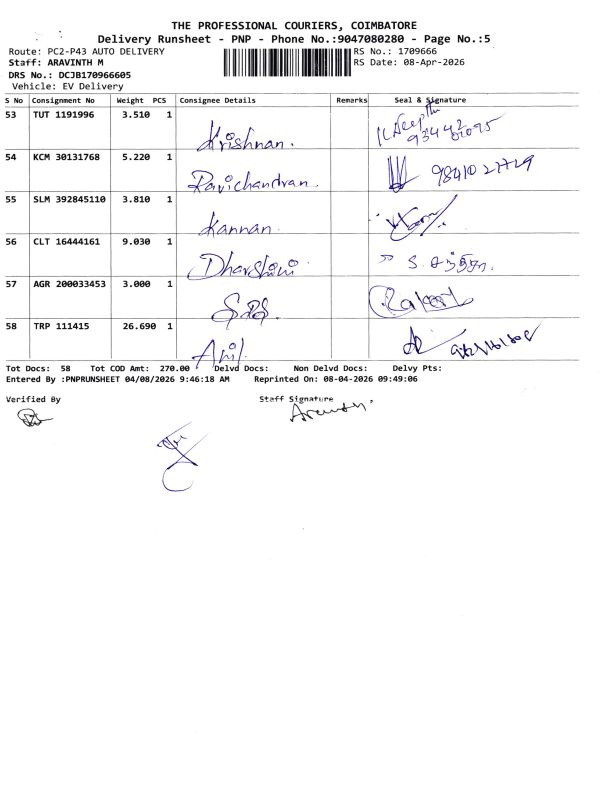 THE PROFESSIONAL COURIERS, COIMBATORE
Delivery Runsheet - PNP - Phone No.:9047080280 - Page No.:5
Route: PC2-P43 AUTO DELIVERY RS No.: 1709666
Staff: ARAVINTH M RS Date: 08-Apr-2026
DRS No.: DCJB170966605
Vehicle: EV Delivery
S No Consignment No Weight PCS Consignee Details Remarks Seal & Signature
53 TUT 1191996 3.510 1 Krishnan.
54 KCM 30131768 5.220 1 Ravichandran.
55 SLM 392845110 3.810 1 Kannan.
56 CLT 16444161 9.030 1 Dharshini
57 AGR 200033453 3.000 1
58 TRP 111415 26.690 1 Anil.
Tot Docs: 58 Tot COD Amt: 270.00 Delvd Docs: Non Delvd Docs: Delvy Pts:
Entered By :PNPRUNSHEET 04/08/2026 9:46:18 AM Reprinted On: 08-04-2026 09:49:06
Verified By Staff Signature